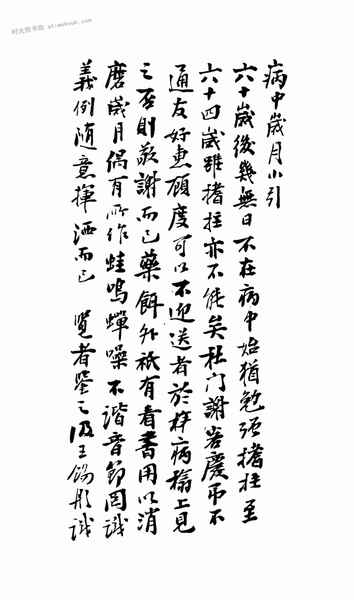 病中歲月小引
六十歲後幾無日不在病中始猶勉强撐拄至
六十四歲雖撐拄亦不能矣杜門謝客慶弔不
通友好惠顧度可以不迎送者於牀病榻上見
之否則敬謝而已藥餌外祇有看書用以消
磨歲月偶有所作蛙鳴蟬噪不諧音節罔識
義例隨意揮洒而已 覽者鑒之汲王錫彤識